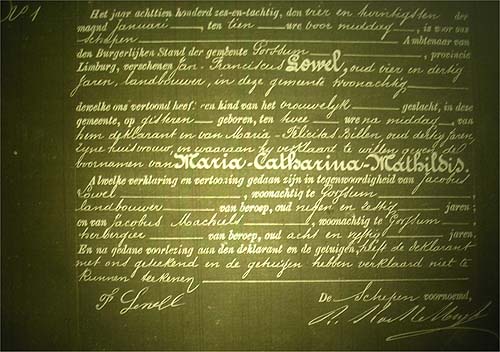 No 1
Het jaar achttien honderd zes-en-tachtig, den vier en twintigsten der
maand januari, ten tien ure voor middag, is voor ons
schepen Ambtenaar van
den Burgerlijken Stand der gemeente Gorssum, provincie
Limburg, verschenen Jan-Franciscus Lowel, oud vier en dertig
jaren, landbouwer, in deze gemeente woonachtig
dewelke ons vertoond heeft een kind van het vrouwelyk geslacht, in deze
gemeente, op gisteren geboren, ten twee ure na middag van
hem deklarant en van Maria-Felicitas Billen, oud dertig jaren,
zyne huisvrouw, en waaraan hy verklaard te willen geven de
voornamen van Maria-Catharina-Mathildis.
Alwelke verklaring en vertooning gedaan zijn in tegenwoordigheid van Jacobus
Lowel, woonachtig te Gorssum
landbouwer van beroep, oud en jaren;
en van Jacobus Machiels, woonachtig te Gorssum
herbergier van beroep, oud acht en jaren.
En na gedane voorlezing aan den deklarant en de getuigen, heeft de deklarant
met ons geteekend en de getuigen hebben verklaard niet te
kunnen teekenen
De Schepen voornoemd,
F Lowell